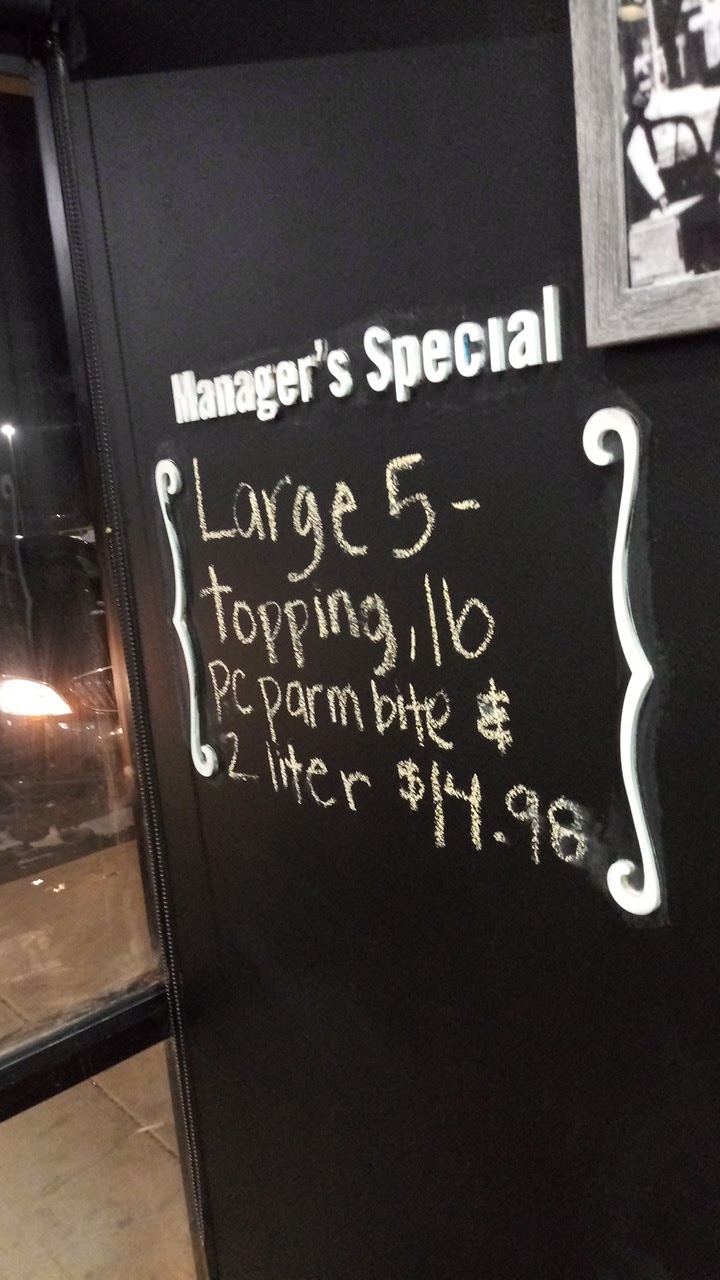 Manager's Special
Large 5-
topping, 16
pc parm bite &
2 liter $14.98